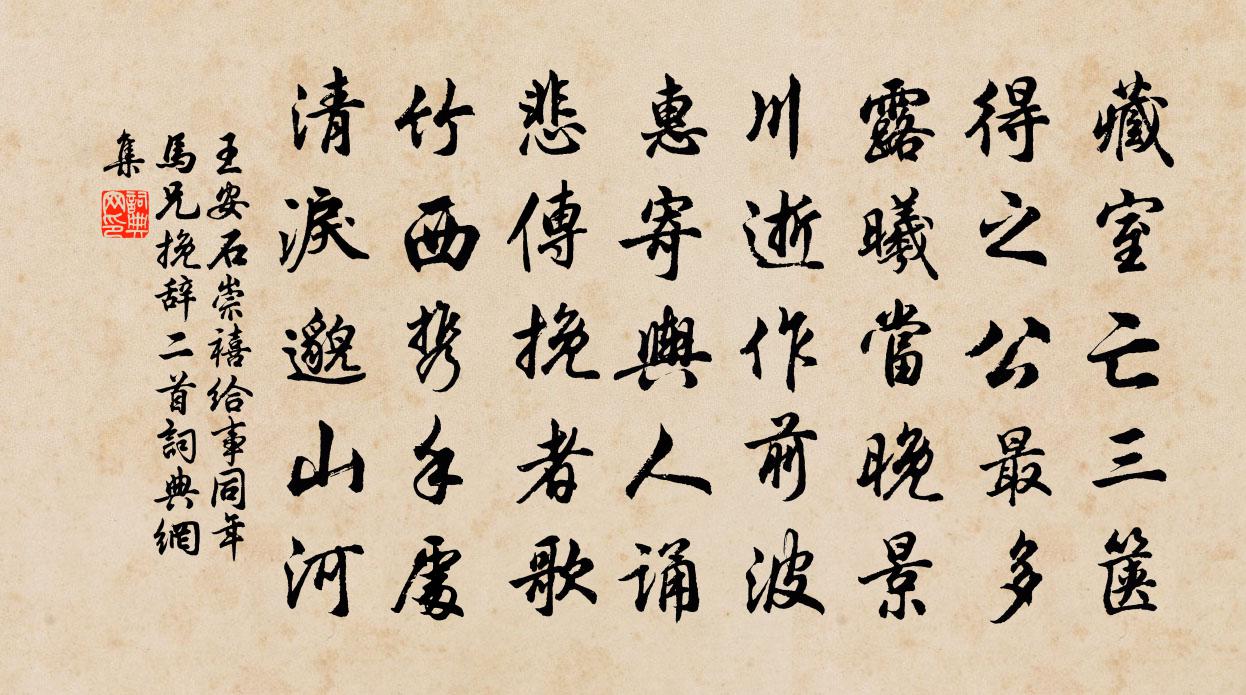 藏室亡三篋
得之公最多
露曦當晚景
川逝作前波
惠寄輿人誦
悲傳挽者歌
竹西携手處
清淚邈山河
王安石崇禧給事同年
馬兄挽辞二首詞典網
集
詞典
网印